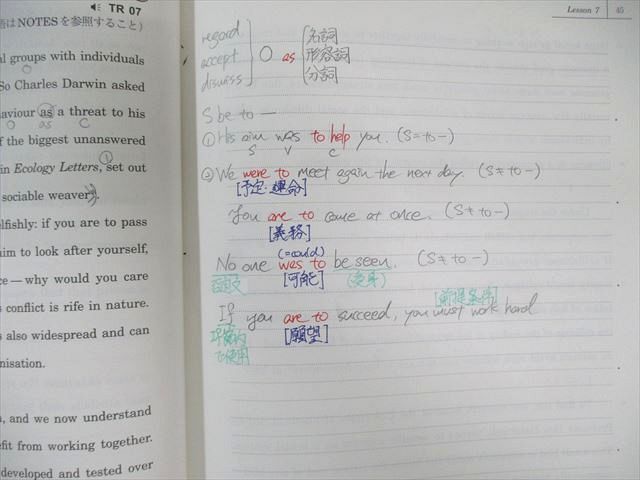 TR 07
語はNOTESを参照すること)
al groups with individuals
So Charles Darwin asked
ehaviour as a threat to his
O as C
f the biggest unanswered
in Ecology Letters, set out ①
sociable weavers.
elfishly: if you are to pass
aim to look after yourself,
ce—why would you care
s conflict is rife in nature.
s also widespread and can
anisation.
n, and we now understand
efit from working together.
developed and tested over
Lesson 7 45
regard
accept
dismiss
O as
名詞
形容詞
分詞
S be to —
① His aim was to help you. (S = to –)
S V C
② We were to meet again the next day. (S ≠ to –)
[予定・運命]
You are to come at once. (S ≠ to –)
[義務]
(=could)
No one was to be seen. (S ≠ to –)
否定文 [可能] (受身)
[前提条件]
If you are to succeed, you must work hard
[願望]
で使用